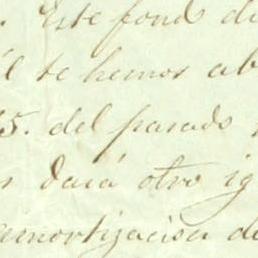 . Este fond
te hemos ab
5. del pasado
dará otro ig
amortizacion de